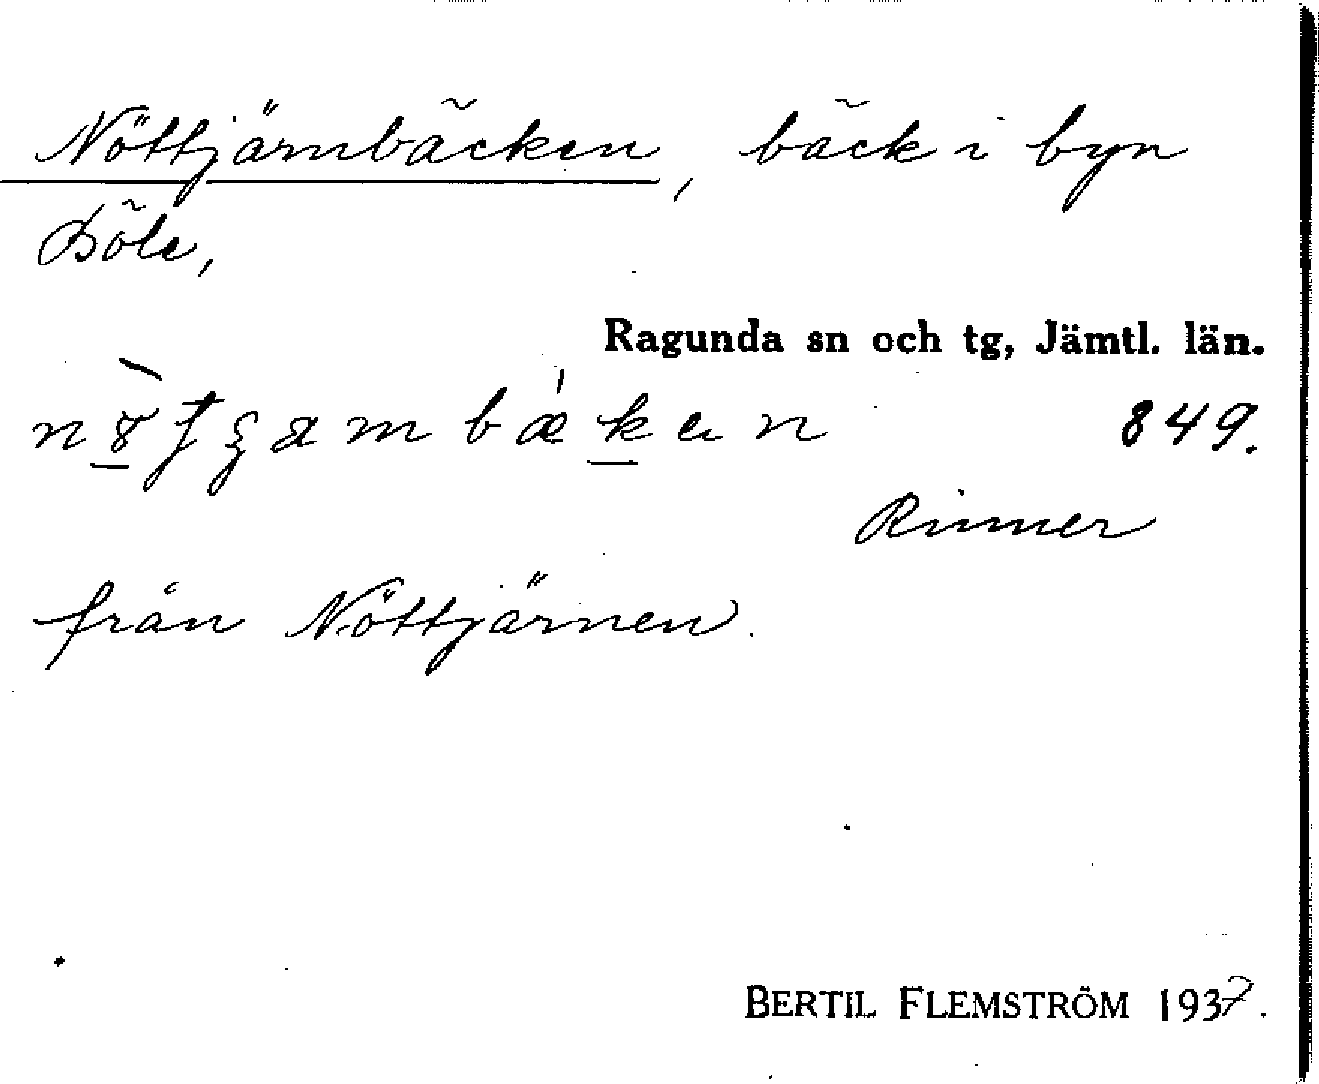 Nöttjärnbäcken, bäck i byn
Böle,
Ragunda sn och tg, Jämtl. län.
849.
Rinner
från Nöttjärnen.
BERTIL FLEMSTRÖM 1937.